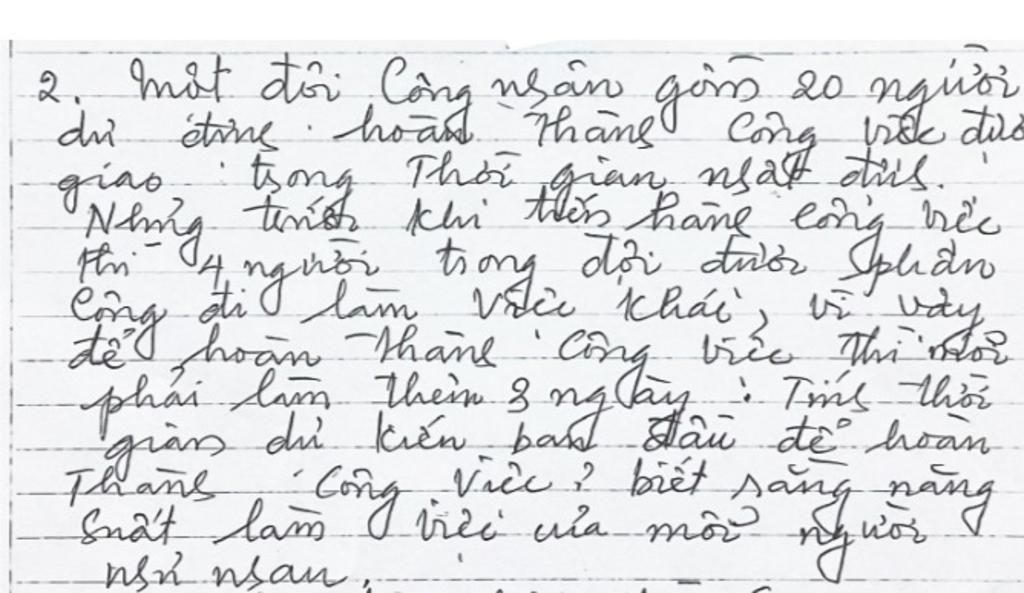 2. Một đội Công nhân gồm 20 người
dự định hoàn thành Công việc được
giao trong Thời gian nhất định.
Nhưng trước khi tiến hành công việc
thì 4 người trong đội được phân
công đi làm việc khác, vì vậy
để hoàn thành Công việc thì mỗi
phải làm thêm 3 ngày. Tính thời
gian dự kiến ban đầu để hoàn
Thành Công Việc? biết rằng năng
suất làm việc của mỗi người
như nhau.